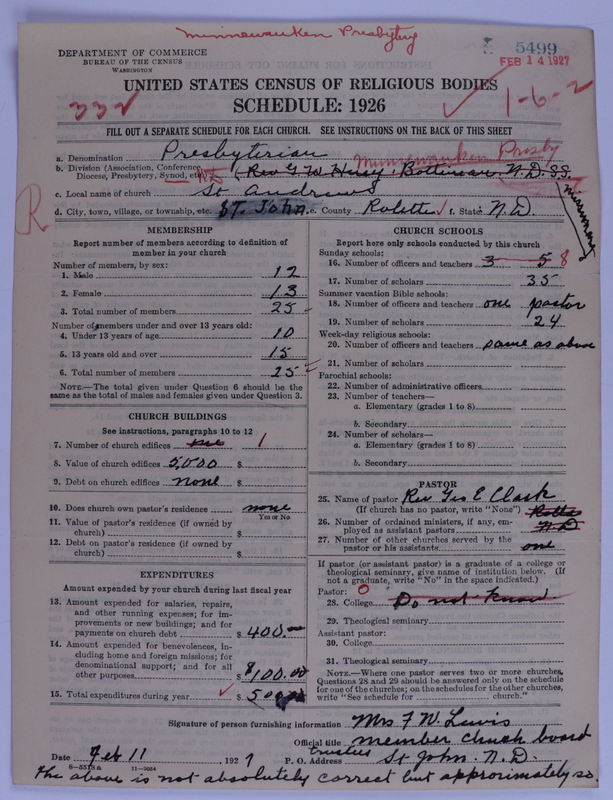 Minnewauken Presbytery
DEPARTMENT OF COMMERCE
BUREAU OF THE CENSUS
WASHINGTON
5499
FEB 14 1927
UNITED STATES CENSUS OF RELIGIOUS BODIES
332
SCHEDULE: 1926
1-6-2
FILL OUT A SEPARATE SCHEDULE FOR EACH CHURCH. SEE INSTRUCTIONS ON THE BACK OF THIS SHEET
a. Denomination Presbyterian Minnewauken Presby
b. Division (Association, Conference, Diocese, Presbytery, Synod, etc.) (Rev G. W. Bottineau, N.D. S.S.
c. Local name of church St Andrews
missionary
d. City, town, village, or township, etc. ST. John e. County Rolette f. State N.D.
R
MEMBERSHIP
Report number of members according to definition of member in your church
Number of members, by sex:
1. Male 12
2. Female 13
3. Total number of members 25
Number of members under and over 13 years old:
4. Under 13 years of age 10
5. 13 years old and over 15
6. Total number of members 25
NOTE.—The total given under Question 6 should be the same as the total of males and females given under Question 3.
CHURCH BUILDINGS
See instructions, paragraphs 10 to 12
7. Number of church edifices one 1
8. Value of church edifices 5,000 $
9. Debt on church edifices none $
10. Does church own pastor's residence none
Yes or No
11. Value of pastor's residence (if owned by church) $
12. Debt on pastor's residence (if owned by church) $
EXPENDITURES
Amount expended by your church during last fiscal year
13. Amount expended for salaries, repairs, and other running expenses; for improvements or new buildings; and for payments on church debt $ 400.
14. Amount expended for benevolences, including home and foreign missions; for denominational support; and for all other purposes $ 100.00
15. Total expenditures during year $ 500
CHURCH SCHOOLS
Report here only schools conducted by this church
Sunday schools:
16. Number of officers and teachers 3 5 8
17. Number of scholars 35
Summer vacation Bible schools:
18. Number of officers and teachers one pastor
19. Number of scholars 24
Week-day religious schools:
20. Number of officers and teachers same as above
21. Number of scholars
Parochial schools:
22. Number of administrative officers
23. Number of teachers—
a. Elementary (grades 1 to 8)
b. Secondary
24. Number of scholars—
a. Elementary (grades 1 to 8)
b. Secondary
PASTOR
25. Name of pastor Rev. Geo E. Clark
(If church has no pastor, write "None") Rolla
26. Number of ordained ministers, if any, employed as assistant pastors N.D
27. Number of other churches served by the pastor or his assistants one
If pastor (or assistant pastor) is a graduate of a college or theological seminary, give name of institution below. (If not a graduate, write "No" in the space indicated.)
Pastor: 0
28. College Do not know
29. Theological seminary
Assistant pastor:
30. College
31. Theological seminary
NOTE.—Where one pastor serves two or more churches, Questions 28 and 29 should be answered only on the schedule for one of the churches; on the schedules for the other churches, write "See schedule for church."
Signature of person furnishing information Mrs F. W. Lewis
Official title member church board trustees
Date Feb 11 1927 P. O. Address St John N.D.
8—5518a 11—9034
The above is not absolutely correct but approximately so.